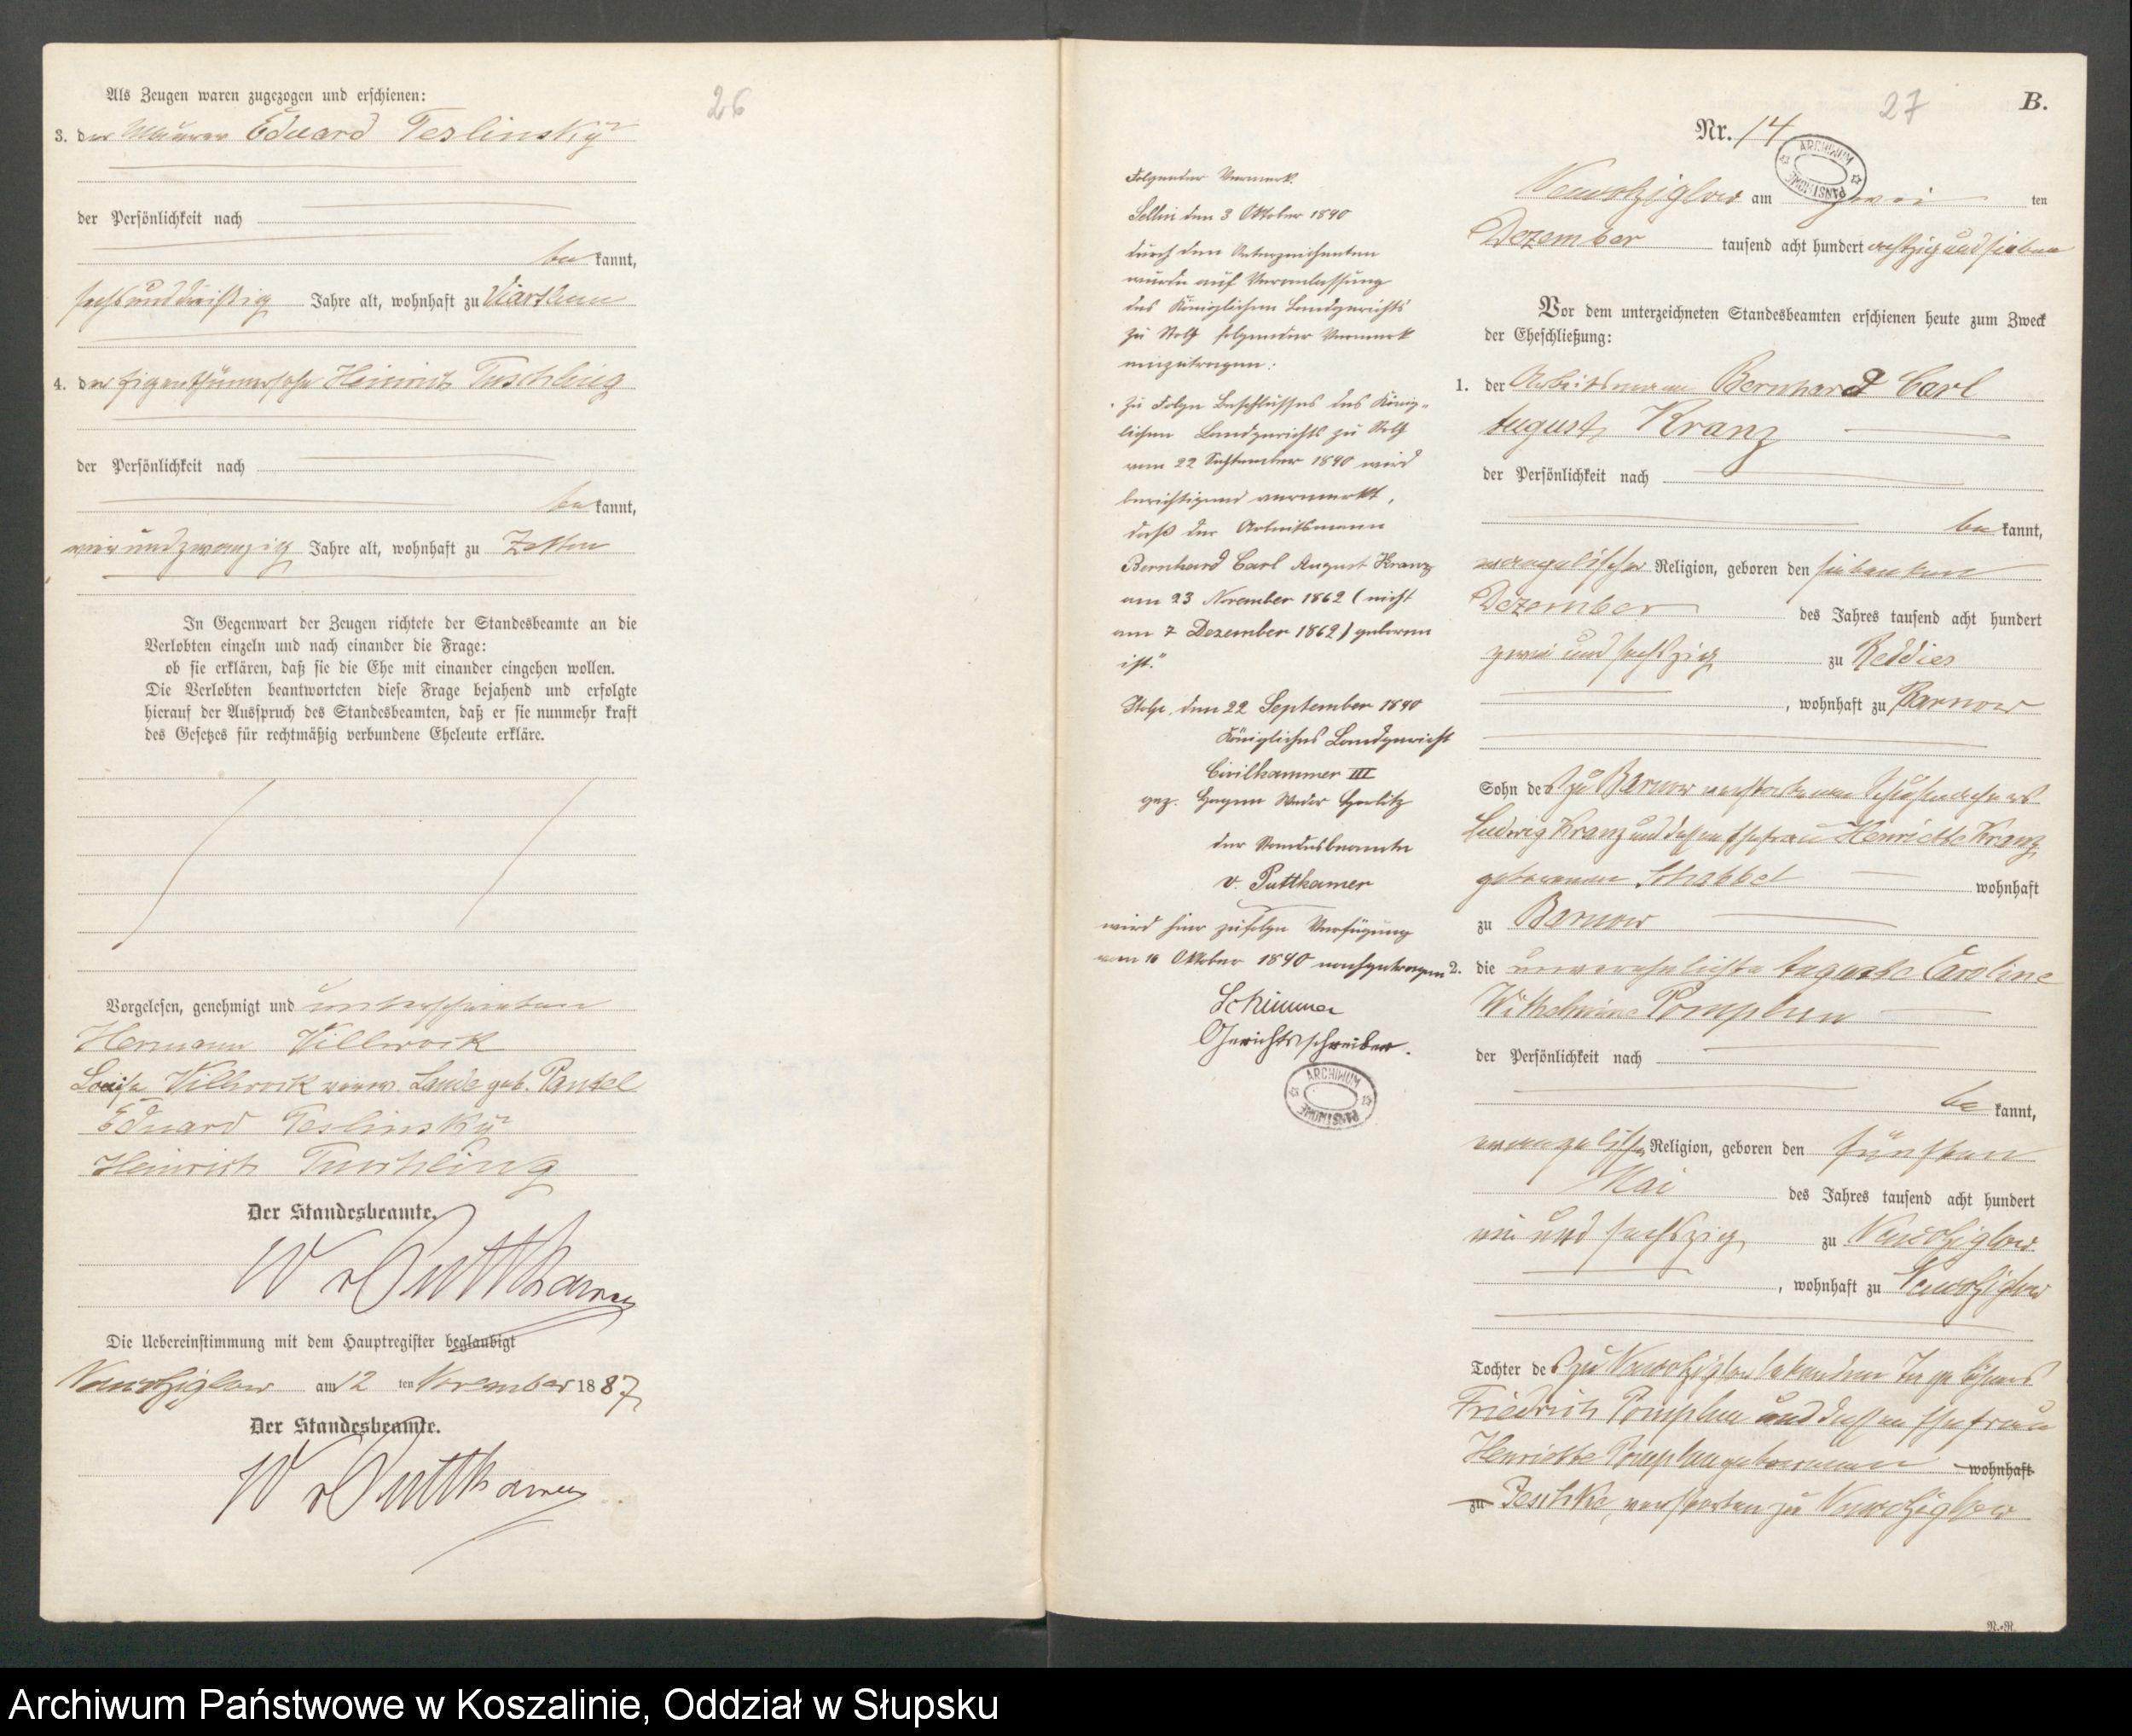 Als Zeugen waren zugezogen und erschienen:
26
3. der Maurer Eduard Teslinsky
der Persönlichkeit nach
be kannt,
sechsunddreißig Jahre alt, wohnhaft zu Viartlum
4. der Eigenthümersohn Heinrich Tuschling
der Persönlichkeit nach
be kannt,
vierundzwanzig Jahre alt, wohnhaft zu Zettin
In Gegenwart der Zeugen richtete der Standesbeamte an die
Verlobten einzeln und nach einander die Frage:
ob sie erklären, daß sie die Ehe mit einander eingehen wollen.
Die Verlobten beantworteten diese Frage bejahend und erfolgte
hierauf der Ausspruch des Standesbeamten, daß er sie nunmehr kraft
des Gesetzes für rechtmäßig verbundene Eheleute erkläre.
Vorgelesen, genehmigt und unterschrieben
Hermann Villwock
Louise Villwock verw. Lande geb. Pantel
Eduard Teslinsky
Heinrich Tuschling
Der Standesbeamte.
W v Puttkamer
Die Uebereinstimmung mit dem Hauptregister beglaubigt
Neuwolziglow am 12 ten November 1887
Der Standesbeamte.
W v Puttkamer
27
B.
Nr. 14
ARCHIWUM PAŃSTWOWE
Folgender Vermerk.
Sellin den 3 Oktober 1890
durch den Unterzeichneten
wurde auf Veranlassung
des Königlichen Landgerichts
zu Stolp folgender Vermerk
einzutragen:
"Zu Folge Beschlusses des König-
lichen Landgerichts zu Stolp
vom 22 September 1890 wird
berichtigend vermerkt,
daß der Arbeitsmann
Bernhard Carl August Kranz
am 23 November 1862 (nicht
am 7 Dezember 1862) geboren
ist."
Stolp, den 22 September 1890
Königliches Landgericht
Civilkammer III
gez. Hagen
der Standesbeamte
v. Puttkamer
wird hier zufolge Verfügung
vom 16 Oktober 1890 nachgetragen
Schimmer
Gerichtsschreiber.
ARCHIWUM PAŃSTWOWE
Neuwolziglow am zwei ten
Dezember tausend acht hundert achtzig und sieben
Vor dem unterzeichneten Standesbeamten erschienen heute zum Zweck
der Eheschließung:
1. der Arbeitsmann Bernhard Carl
August Kranz
der Persönlichkeit nach
be kannt,
evangelischer Religion, geboren den siebenten
Dezember des Jahres tausend acht hundert
zwei und sechszig zu Reddies
, wohnhaft zu Barnow
Sohn des zu Barnow verstorbenen
Ludwig Kranz und dessen Ehefrau Henriette Kranz
geborenen Schabbel wohnhaft
zu Barnow
2. die unverehelichte Auguste Caroline
Wilhelmine Pomplun
der Persönlichkeit nach
be kannt,
evangelischer Religion, geboren den fünften
Mai des Jahres tausend acht hundert
ein und sechszig zu Neuwolziglow
, wohnhaft zu Neuwolziglow
Tochter des zu Neuwolziglow lebenden Tagelöhners
Friedrich Pomplun und dessen Ehefrau
Henriette Pomplun geborenen wohnhaft
zu Peschke, verstorben zu Neuwolziglow
N.-R.
Archiwum Państwowe w Koszalinie, Oddział w Słupsku